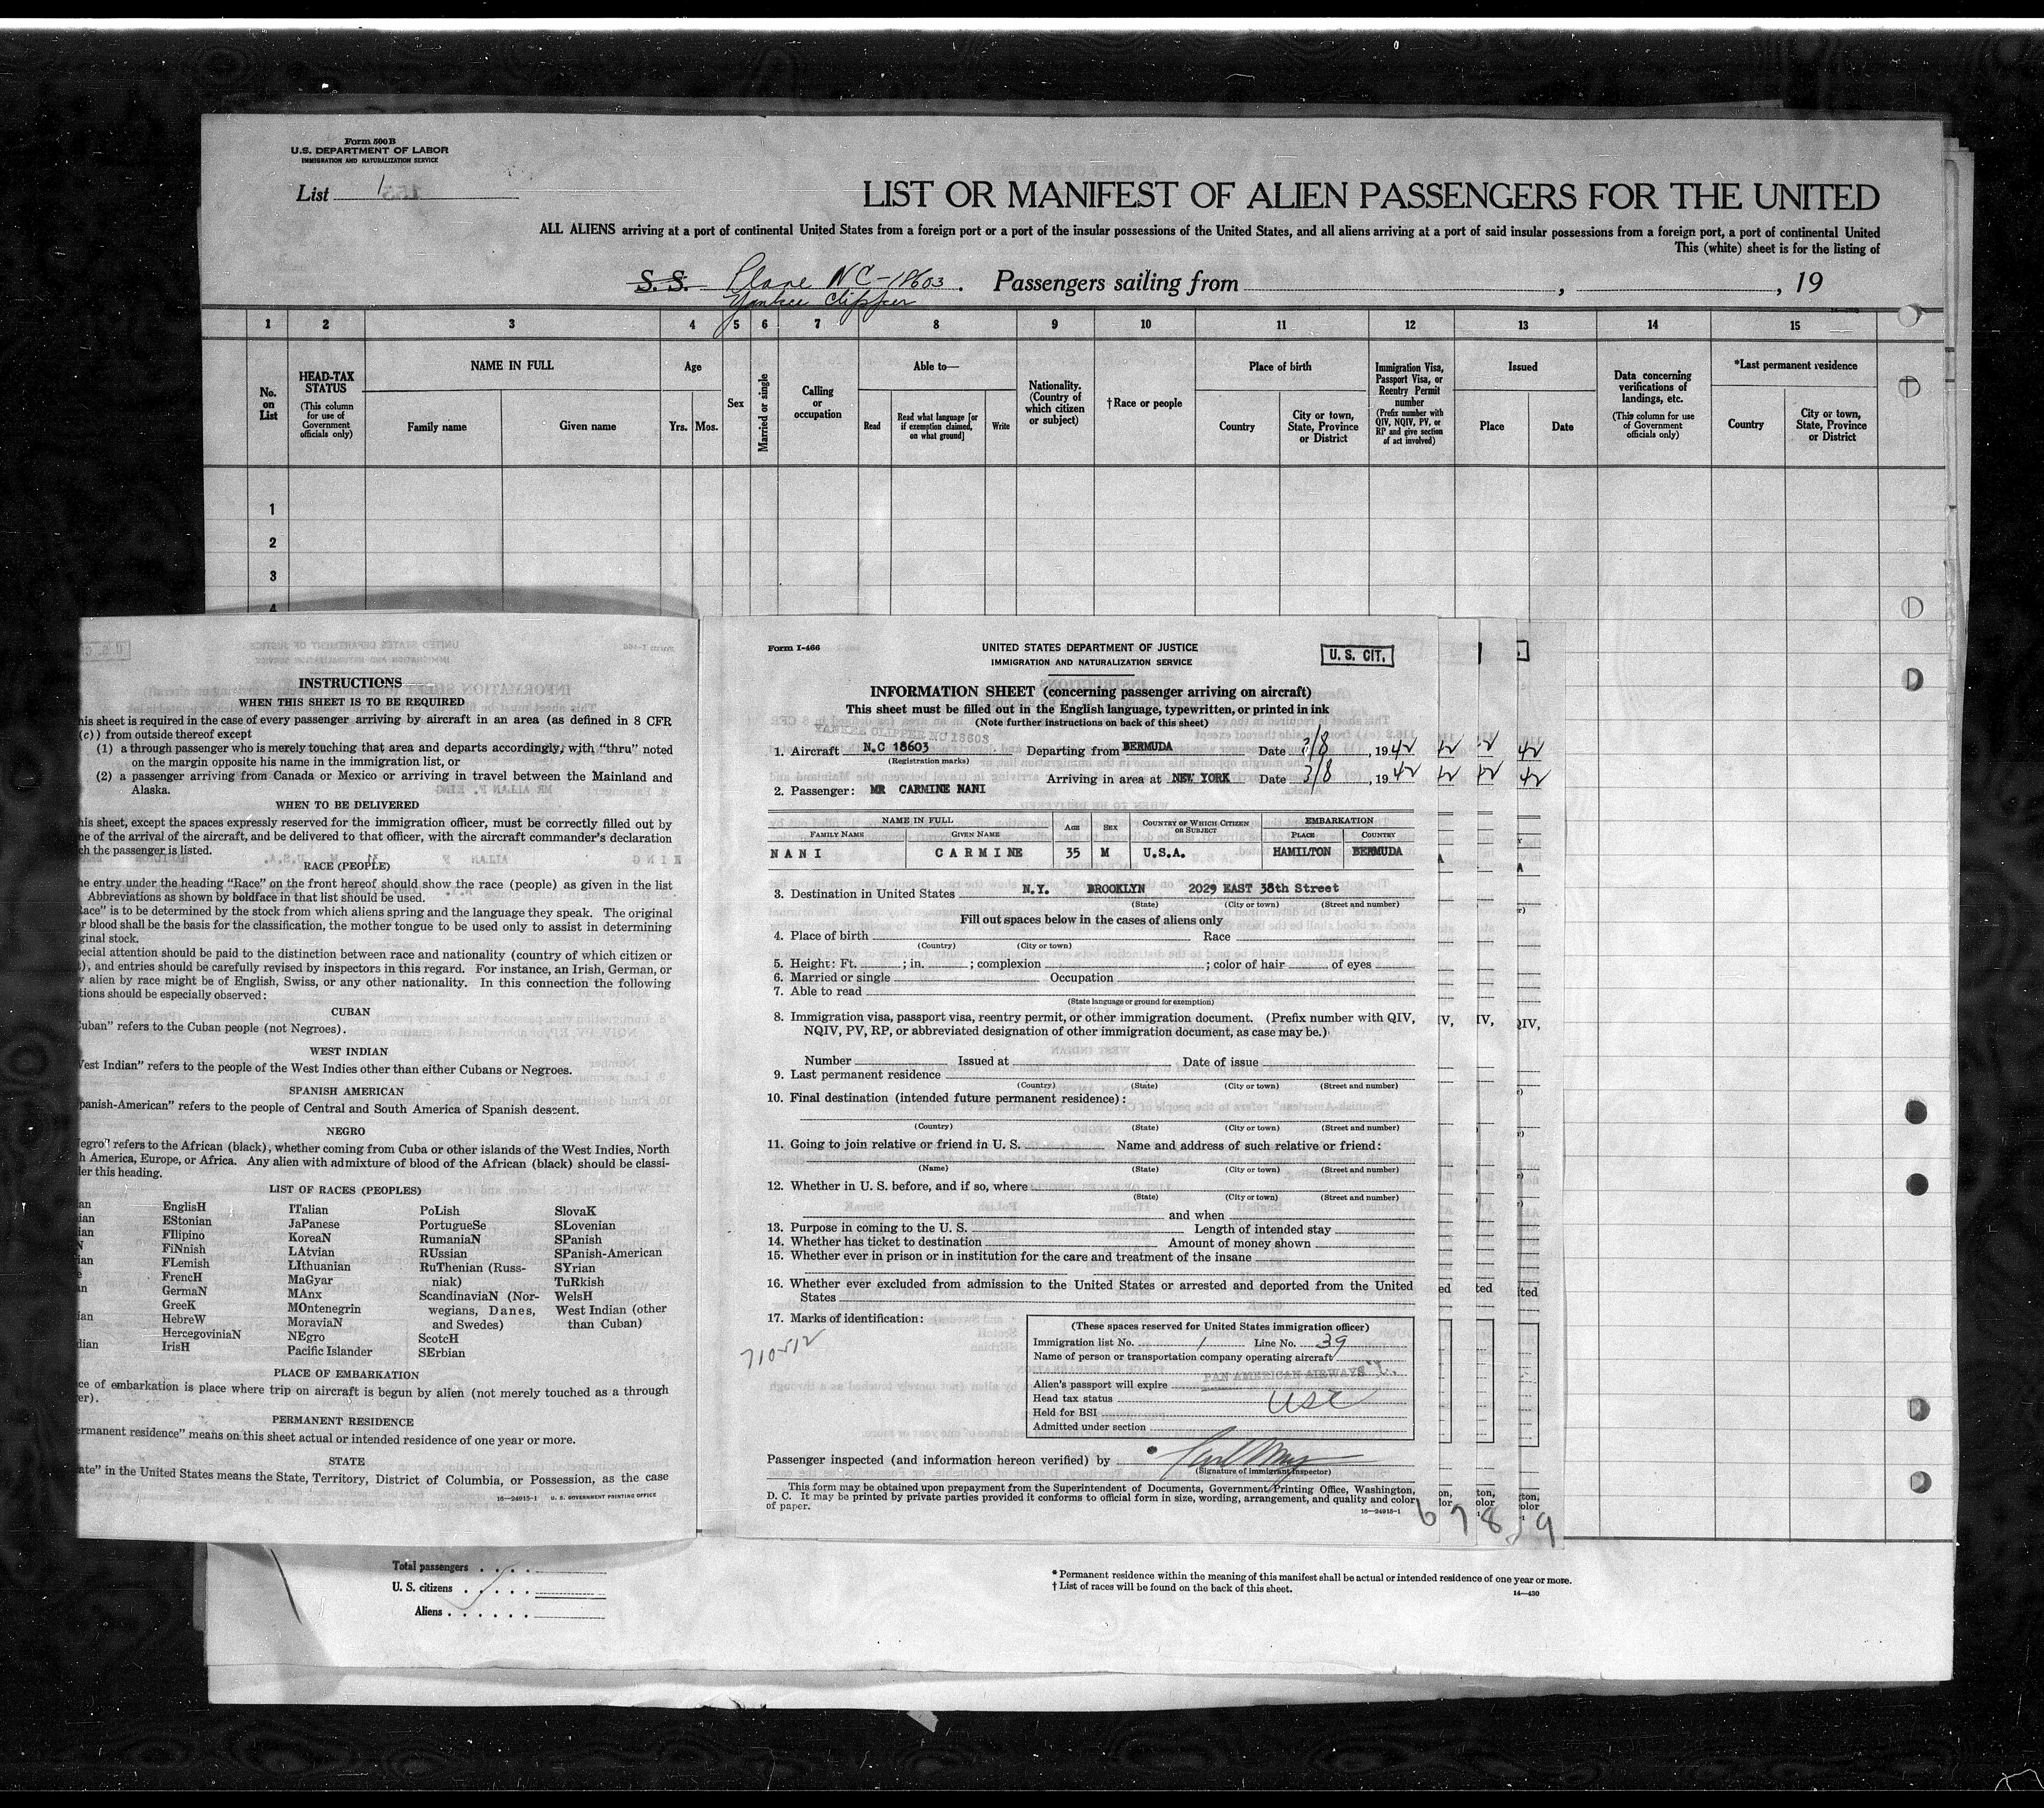 Form 500B
U.S. DEPARTMENT OF LABOR
IMMIGRATION AND NATURALIZATION SERVICE
List 1
LIST OR MANIFEST OF ALIEN PASSENGERS FOR THE UNITED
ALL ALIENS arriving at a port of continental United States from a foreign port or a port of the insular possessions of the United States, and all aliens arriving at a port of said insular possessions from a foreign port, a port of continental United
This (white) sheet is for the listing of
S. S. Plane NC-18603. Passengers sailing from , , 19
Yankee Clipper
1 2 3 4 5 6 7 8 9 10 11 12 13 14 15
No. on List
HEAD-TAX STATUS
(This column for use of Government officials only)
NAME IN FULL
Family name Given name
Age
Yrs. Mos.
Sex
Married or single
Calling or occupation
Able to—
Read Read what language [or if exemption claimed, on what ground] Write
Nationality. (Country of which citizen or subject)
†Race or people
Place of birth
Country City or town, State, Province or District
Immigration Visa, Passport Visa, or Reentry Permit number
(Prefix number with QIV, NQIV, PV, or RP and give section of act involved)
Issued
Place Date
Data concerning verifications of landings, etc.
(This column for use of Government officials only)
*Last permanent residence
Country City or town, State, Province or District
1
2
3
4
INSTRUCTIONS
WHEN THIS SHEET IS TO BE REQUIRED
his sheet is required in the case of every passenger arriving by aircraft in an area (as defined in 8 CFR
(c)) from outside thereof except
(1) a through passenger who is merely touching that area and departs accordingly, with "thru" noted
on the margin opposite his name in the immigration list, or
(2) a passenger arriving from Canada or Mexico or arriving in travel between the Mainland and
Alaska.
WHEN TO BE DELIVERED
his sheet, except the spaces expressly reserved for the immigration officer, must be correctly filled out by
ne of the arrival of the aircraft, and be delivered to that officer, with the aircraft commander's declaration
ch the passenger is listed.
RACE (PEOPLE)
he entry under the heading "Race" on the front hereof should show the race (people) as given in the list
Abbreviations as shown by boldface in that list should be used.
Race" is to be determined by the stock from which aliens spring and the language they speak. The original
r blood shall be the basis for the classification, the mother tongue to be used only to assist in determining
ginal stock.
pecial attention should be paid to the distinction between race and nationality (country of which citizen or
), and entries should be carefully revised by inspectors in this regard. For instance, an Irish, German, or
w alien by race might be of English, Swiss, or any other nationality. In this connection the following
tions should be especially observed:
CUBAN
Cuban" refers to the Cuban people (not Negroes).
WEST INDIAN
West Indian" refers to the people of the West Indies other than either Cubans or Negroes.
SPANISH AMERICAN
panish-American" refers to the people of Central and South America of Spanish descent.
NEGRO
egro" refers to the African (black), whether coming from Cuba or other islands of the West Indies, North
h America, Europe, or Africa. Any alien with admixture of blood of the African (black) should be classi-
der this heading.
LIST OF RACES (PEOPLES)
an EnglisH ITalian PoLish SlovaK
ian EStonian JaPanese PortugueSe SLovenian
ian FIlipino KoreaN RumaniaN SPanish
N FiNnish LAtvian RUssian SPanish-American
ian FLemish LIthuanian RuThenian (Russ- SYrian
e FrencH MaGyar niak) TuRkish
an GermaN MAnx ScandinaviaN (Nor- WelsH
GreeK MOntenegrin wegians, Danes, West Indian (other
ian HebreW MoraviaN and Swedes) than Cuban)
HercegoviniaN NEgro ScotcH
dian IrisH Pacific Islander SErbian
PLACE OF EMBARKATION
ce of embarkation is place where trip on aircraft is begun by alien (not merely touched as a through
er).
PERMANENT RESIDENCE
ermanent residence" means on this sheet actual or intended residence of one year or more.
STATE
ate" in the United States means the State, Territory, District of Columbia, or Possession, as the case
16—24915-1 U. S. GOVERNMENT PRINTING OFFICE
Form I-466
UNITED STATES DEPARTMENT OF JUSTICE
IMMIGRATION AND NATURALIZATION SERVICE
U. S. CIT.
INFORMATION SHEET (concerning passenger arriving on aircraft)
This sheet must be filled out in the English language, typewritten, or printed in ink
(Note further instructions on back of this sheet)
YANKEE CLIPPER NC 18603
1. Aircraft N.C 18603 Departing from BERMUDA Date 3/8, 1942
(Registration marks)
Arriving in area at NEW YORK Date 3/8, 1942
2. Passenger: MR CARMINE NANI
NAME IN FULL AGE SEX COUNTRY OF WHICH CITIZEN OR SUBJECT EMBARKATION
FAMILY NAME GIVEN NAME PLACE COUNTRY
NANI CARMINE 35 M U.S.A. HAMILTON BERMUDA
3. Destination in United States N.Y. BROOKLYN 2029 EAST 38th Street
(State) (City or town) (Street and number)
Fill out spaces below in the cases of aliens only
4. Place of birth Race
(Country) (City or town)
5. Height: Ft. ; in. ; complexion ; color of hair of eyes
6. Married or single Occupation
7. Able to read
(State language or ground for exemption)
8. Immigration visa, passport visa, reentry permit, or other immigration document. (Prefix number with QIV,
NQIV, PV, RP, or abbreviated designation of other immigration document, as case may be.)
Number Issued at Date of issue
9. Last permanent residence
(Country) (State) (City or town) (Street and number)
10. Final destination (intended future permanent residence):
(Country) (State) (City or town) (Street and number)
11. Going to join relative or friend in U. S. Name and address of such relative or friend:
(Name) (State) (City or town) (Street and number)
12. Whether in U. S. before, and if so, where
(State) (City or town) (Street and number)
and when
13. Purpose in coming to the U. S. Length of intended stay
14. Whether has ticket to destination Amount of money shown
15. Whether ever in prison or in institution for the care and treatment of the insane
16. Whether ever excluded from admission to the United States or arrested and deported from the United
States
17. Marks of identification:
710512
(These spaces reserved for United States immigration officer)
Immigration list No. 1 Line No. 39
Name of person or transportation company operating aircraft
PAN AMERICAN AIRWAYS
Alien's passport will expire
Head tax status USC
Held for BSI
Admitted under section
Passenger inspected (and information hereon verified) by
(Signature of immigrant inspector)
This form may be obtained upon prepayment from the Superintendent of Documents, Government Printing Office, Washington,
D. C. It may be printed by private parties provided it conforms to official form in size, wording, arrangement, and quality and color
of paper.
16—24915-1
6 7 8 9
Total passengers
U. S. citizens
Aliens
* Permanent residence within the meaning of this manifest shall be actual or intended residence of one year or more.
† List of races will be found on the back of this sheet.
14—430